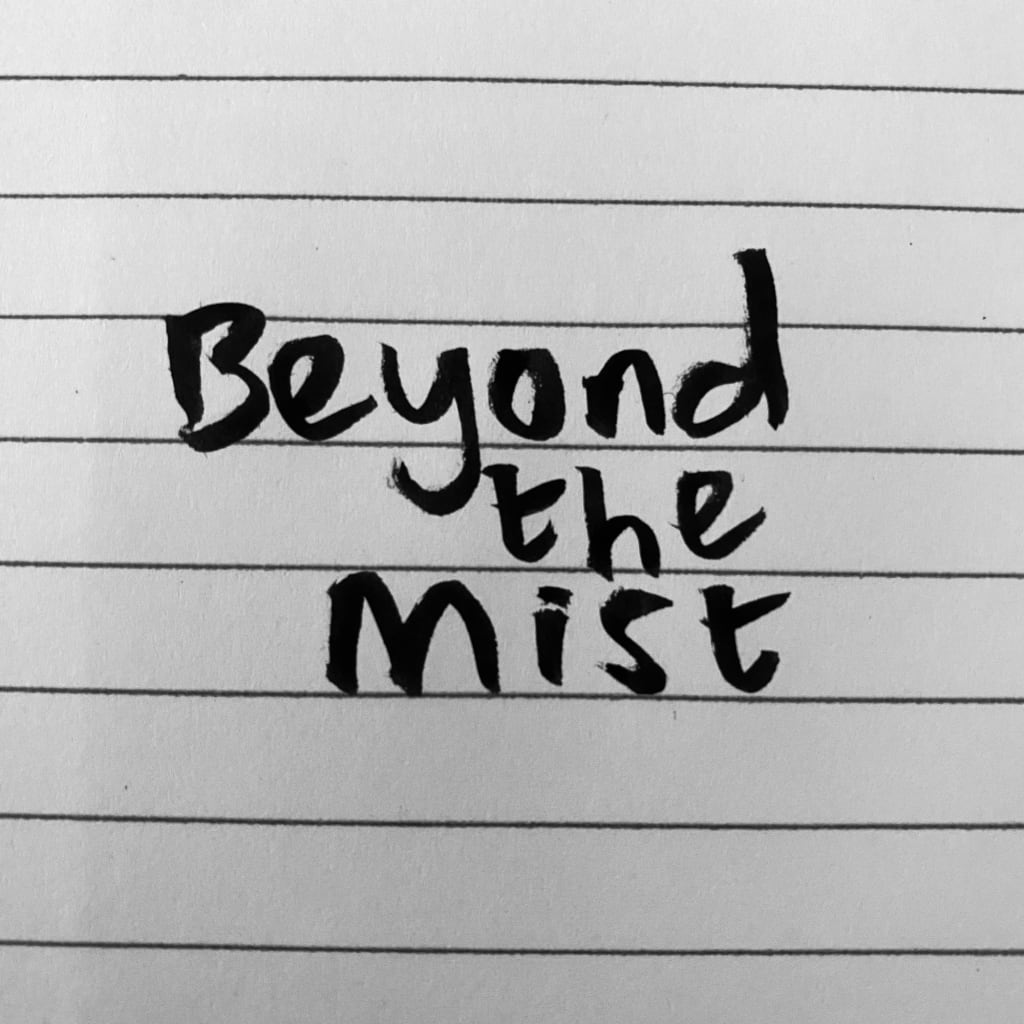 Beyond
the
Mist